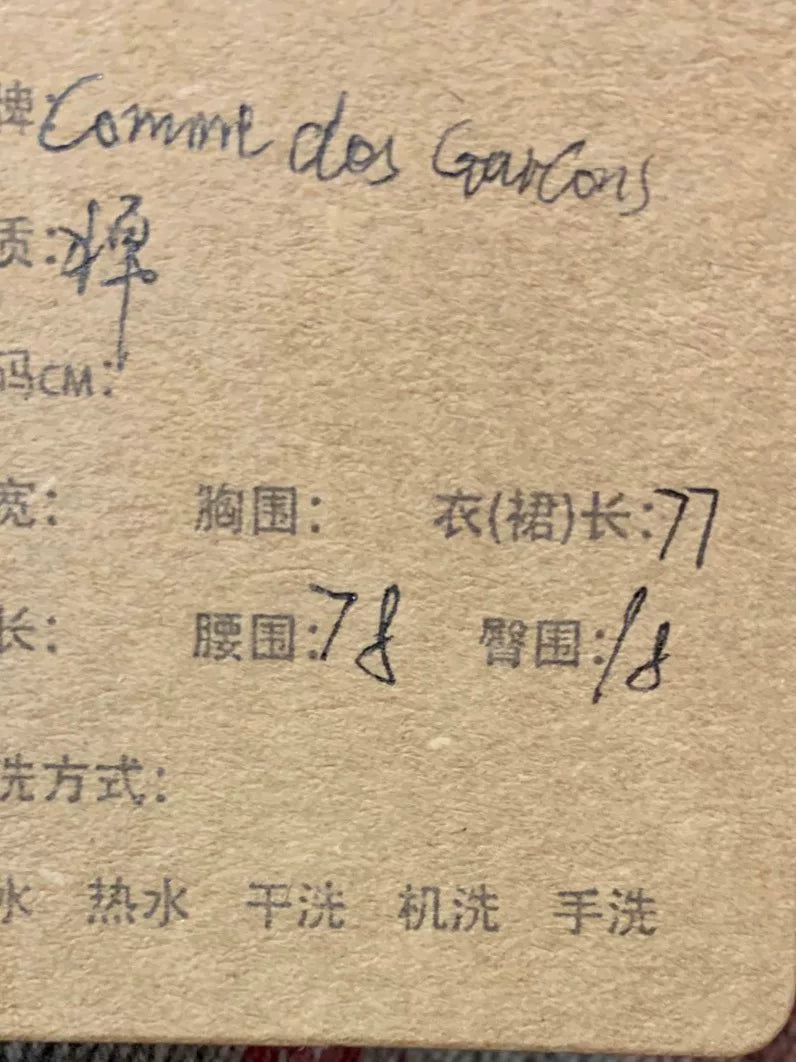 牌: Comme des Garcons
质:
码CM:
宽: 胸围: 衣(裙)长:77
长: 腰围:78 臀围:18
洗方式:
水 热水 干洗 机洗 手洗